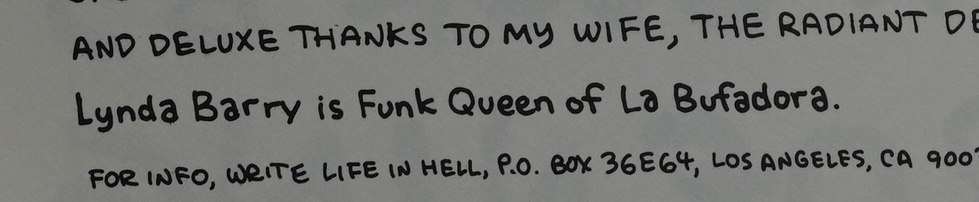 AND DELUXE THANKS TO MY WIFE, THE RADIANT
Lynda Barry is Funk Queen of La Bufadora.
FOR INFO, WRITE LIFE IN HELL, P.O. BOX 36E64, LOS ANGELES, CA